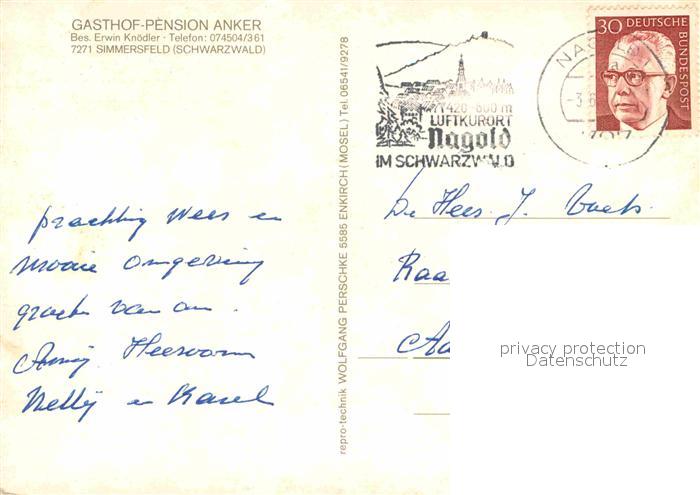 GASTHOF-PENSION ANKER
Bes. Erwin Knödler · Telefon: 074504/361
7271 SIMMERSFELD (SCHWARZWALD)
prachtig weer en
mooie omgeving
groeten van
Heesvoorn
Nelly en Karel
repro-technik WOLFGANG PERSCHKE 5585 ENKIRCH (MOSEL) Tel. 06541/9278
420-600 m
LUFTKURORT
Nagold
IM SCHWARZWALD
NAGOLD
30 DEUTSCHE
BUNDESPOST
De Heer J.
Raa
privacy protection
Datenschutz